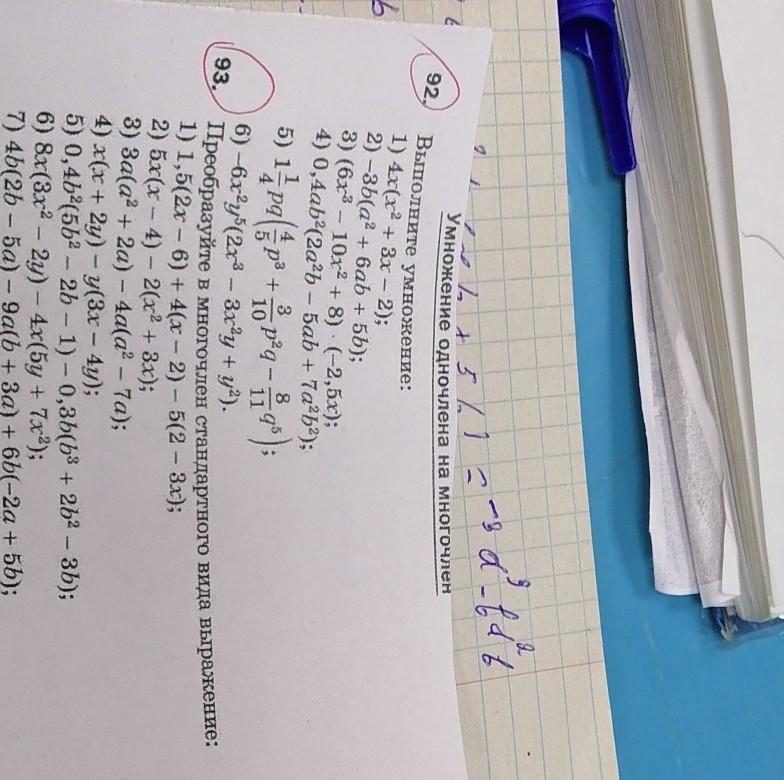 + 5b) = -3a³ - 6a²b
Умножение одночлена на многочлен
92. Выполните умножение:
1) 4x(x² + 3x − 2);
2) −3b(a² + 6ab + 5b);
3) (6x³ − 10x² + 8) · (−2,5x);
4) 0,4ab²(2a²b − 5ab + 7a²b²);
5) 1 1/4 pq(4/5 p³ + 3/10 p²q − 8/11 q⁵);
6) −6x²y⁵(2x³ − 3x²y + y²).
93. Преобразуйте в многочлен стандартного вида выражение:
1) 1,5(2x − 6) + 4(x − 2) − 5(2 − 3x);
2) 5x(x − 4) − 2(x² + 3x);
3) 3a(a² + 2a) − 4a(a² − 7a);
4) x(x + 2y) − y(3x − 4y);
5) 0,4b²(5b² − 2b − 1) − 0,3b(b³ + 2b² − 3b);
6) 8x(3x² − 2y) − 4x(5y + 7x²);
7) 4b(2b − 5a) − 9a(b + 3a) + 6b(−2a + 5b);